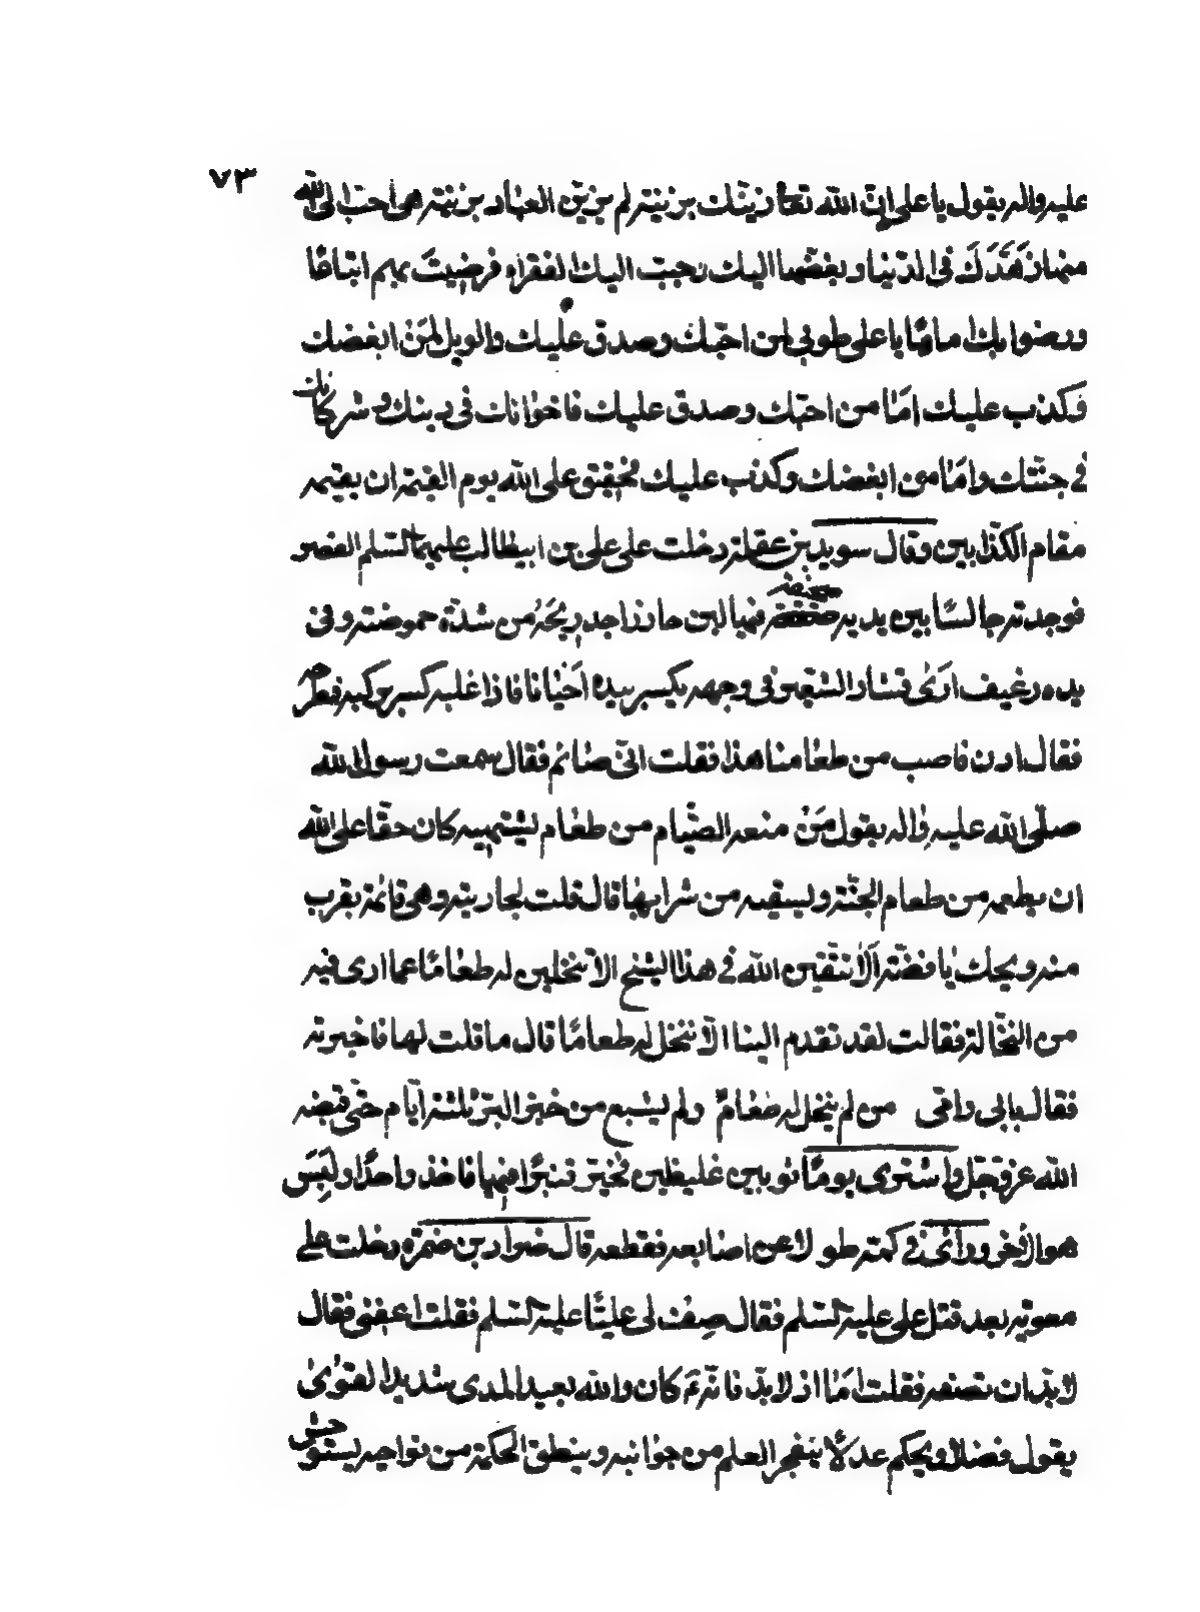 ٧٣
عليه واله يقول يا على انّ الله تعا زينك بزينة لم يزيّن العباد بزينة هى احبّ الى الله
منها زَهَّدَكَ فى الدنيا وبغّضها اليك وحبب اليك الفقراء فرضيتَ بهم اتباعًا
ورضوا بك امامًا يا على طوبى لمن احبّك وصدق عليك والويل لمَنْ ابغضك
وكذب عليك امّا من احبّك وصدق عليك فاخوانك فى دينك وشركاؤك
فى جنّتك وامّا من ابغضك وكذب عليك فحقيق على الله يوم القيمة ان يقيمه
مقام الكذّابين وقال سويد بن عقلة دخلت على على بن ابيطالب عليهما السّلم القصر
فوجدته جالسًا بين يديه صحفة فيها لبن حازر اجد ريحَهُ من شدّة حموضته وفى
يده رغيف ارَى قشار الشعير فى وجهه يكسر بيده احْيانا فاذا غلبه كسره بركبته فطرحه
فقال ادن فاصب من طعامنا هذا فقلت انّى صائم فقال سمعت رسول الله
صلّى الله عليه واله يقول مَنْ منعه الصّيام من طعام يشتهيه كان حقّا على الله
ان يطعمه من طعام الجنّة ويسقيه من شرابها قال قلت لجاريته وهى قائمة بقرب
منه ويحك يا فضّة اَلا تتّقين الله فى هذا الشيخ الا تنخلين له طعامًا مما ارى فيه
من النخّالة فقالت لقد تقدم الينا الّا ننخل له طعامًا قال ما قلت لها فاخبرته
فقال بابى وامّى من لم ينخل له طعامٌ ولم يشبع من خبز البرّ ثلثة ايّام حتّى قبضه
الله عز وجل واشترى يومًا ثوبين غليظين فخيّر قنبرًا فيهما فاخذ واحدًا ولَبِسَ
هو الاخر ورأى فى كمّه طولا عن اصابعه فقطعه قال ضرار بن ضمرة دخلت على
معوية بعد قتل على عليه السّلم فقال صِفْ لى عليًّا عليه السّلم فقلت اعفنى فقال
لا بدّ ان تصفه فقلت امّا اذ لا بدّ فانّه كان والله بعيد المدى شديد القوىٰ
يقول فضلا ويحكم عدلًا يتفجر العلم من جوانبه وينطق الحكمة من نواحيه يستوحش